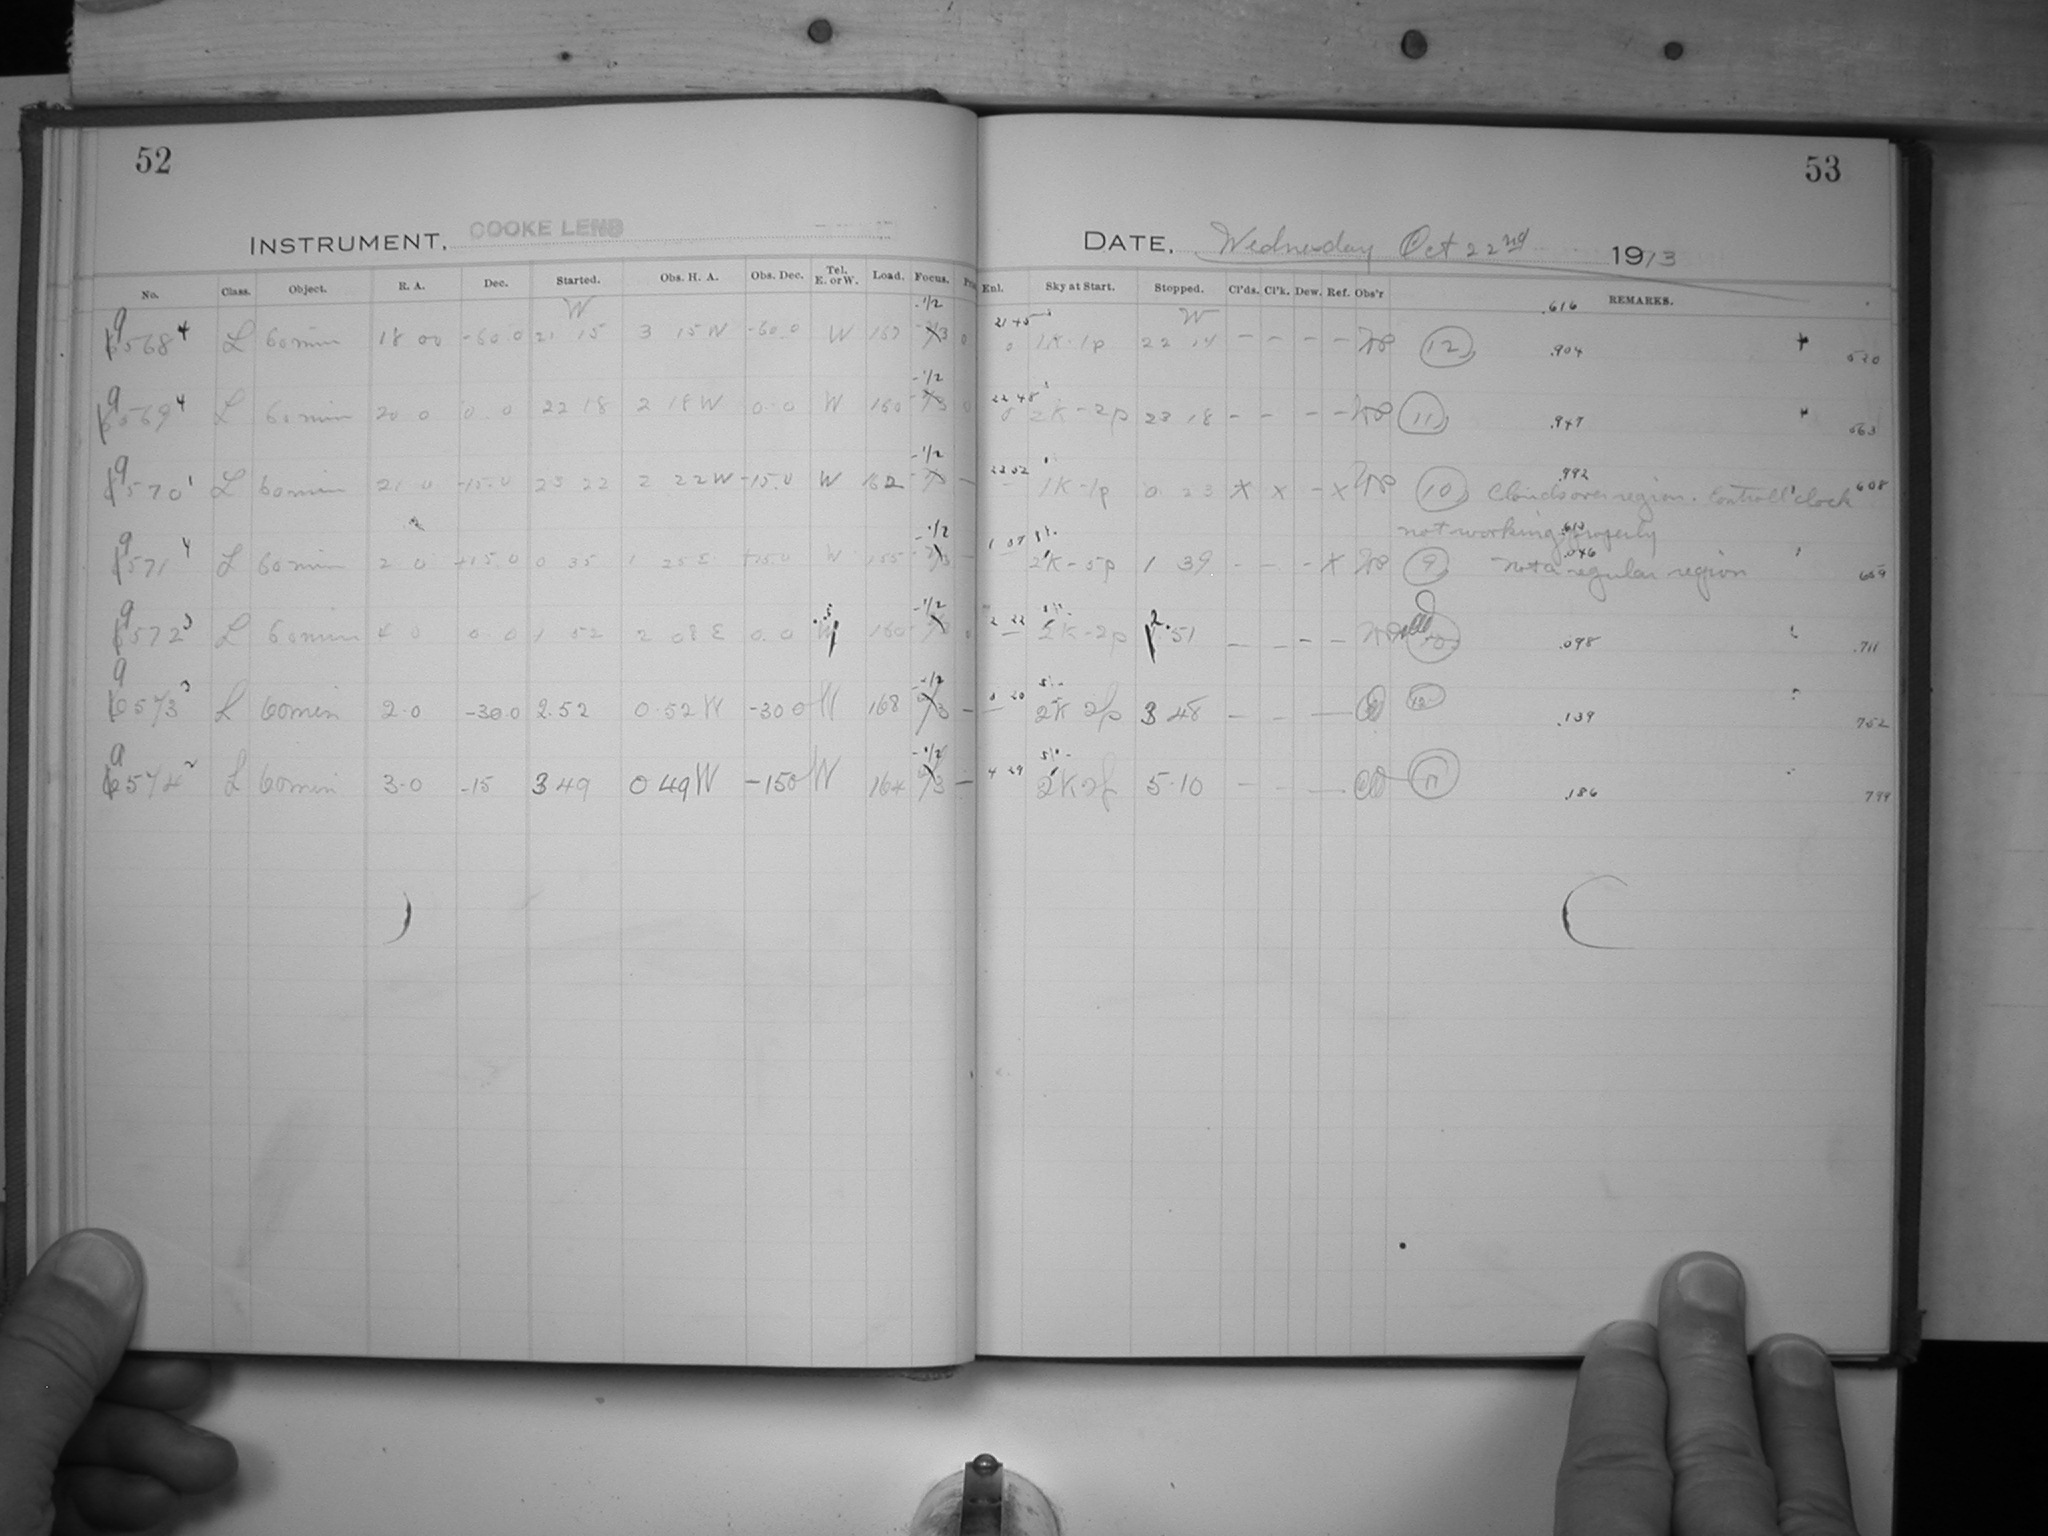 52
53
INSTRUMENT. COOKE LENS
DATE. Wednesday Oct 22nd 1913
No. Class. Object. R. A. Dec. Started. Obs. H. A. Obs. Dec. Tel. E. or W. Load. Focus.
Enl. Sky at Start. Stopped. Cl'ds. Cl'k. Dew. Ref. Obs'r REMARKS.
W W .616
568 4 L 60 min 18 00 -60.0 21 15 3 15 W -60.0 W 21 45 1K-1p 22 14 - - - - (12) .904
-1/2
569 4 L 60 min 20 0 0.0 22 18 2 18 W 0.0 W 160 22 48 2K-2p 23 18 - - - - (11) .947 563
-1/2
570 1 L 60 min 21 0 -15.0 23 22 2 22 W -15.0 W 162 1K-1p 0 23 X X - X (10) .992 Clouds over region. Controll clock 608
not working properly .613
-1/2
571 4 L 60 min 2 0 +15.0 0 35 1 25 E +15.0 W 155 1 07 2K-5p 1 39 - - - X (9) .046 not a regular region 659
-1/2
572 3 L 60 min 4 0 0.0 1 52 2 08 E 0.0 160 2 22 2K-2p 2.51 - - - - .098 .711
-1/2
573 3 L 60 min 2.0 -30.0 2.52 0.52 W -30 0 W 168 3 20 2K 2p 3 48 - - - (12) .139 752
-1/2
574 2 L 60 min 3.0 -15 3 49 0 49 W -15 0 W 164 4 29 2K 2p 5.10 - - - (11) .186 799